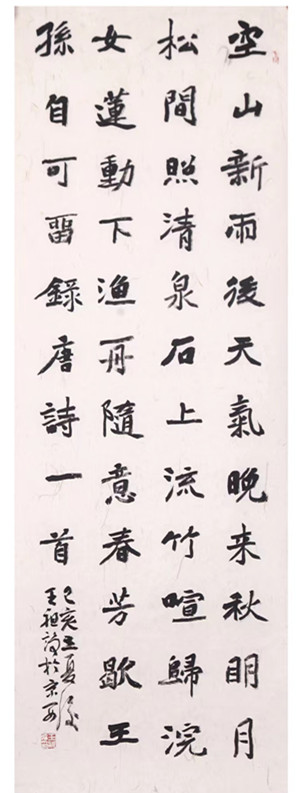 空山新雨後天氣晚来秋明月
松間照清泉石上流竹喧歸浣
女蓮動下渔舟隨意春芳歇王
孫自可留錄唐詩一首
己亥立夏後
王祖於京